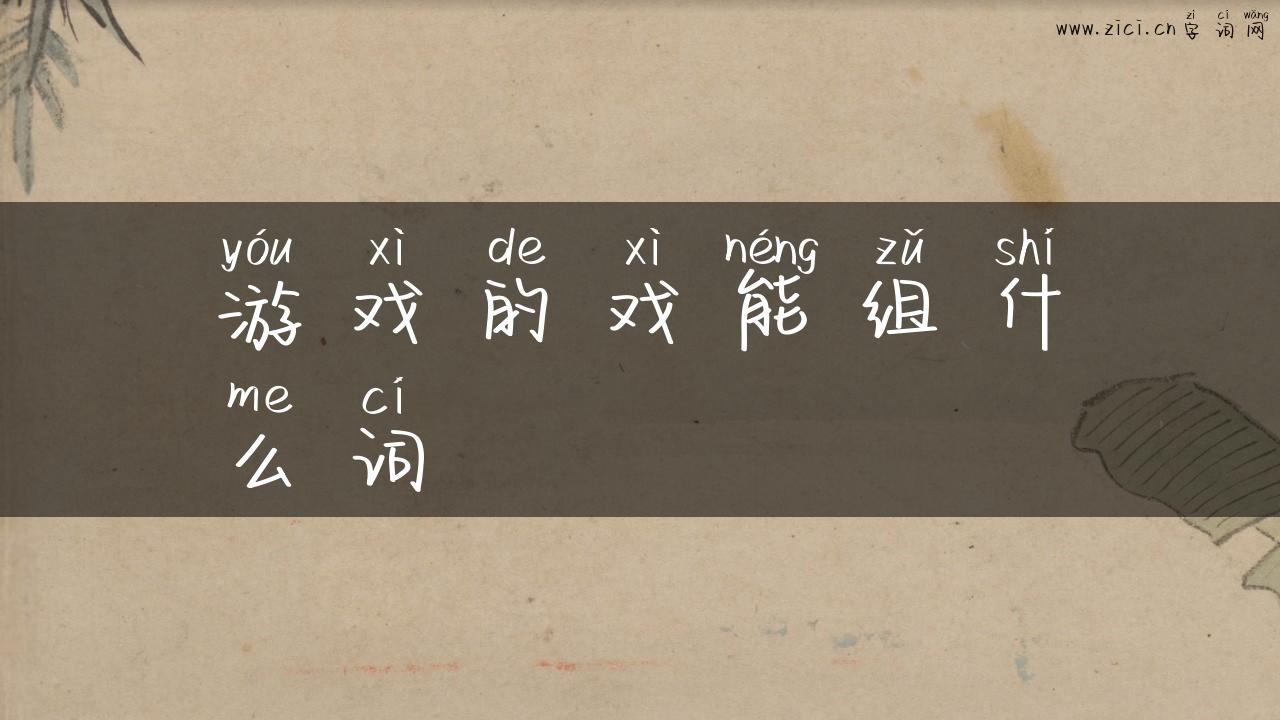 zì cí wǎng
www.zici.cn 字词网
yóu xì de xì néng zǔ shí
游戏的戏能组什
me cí
么词